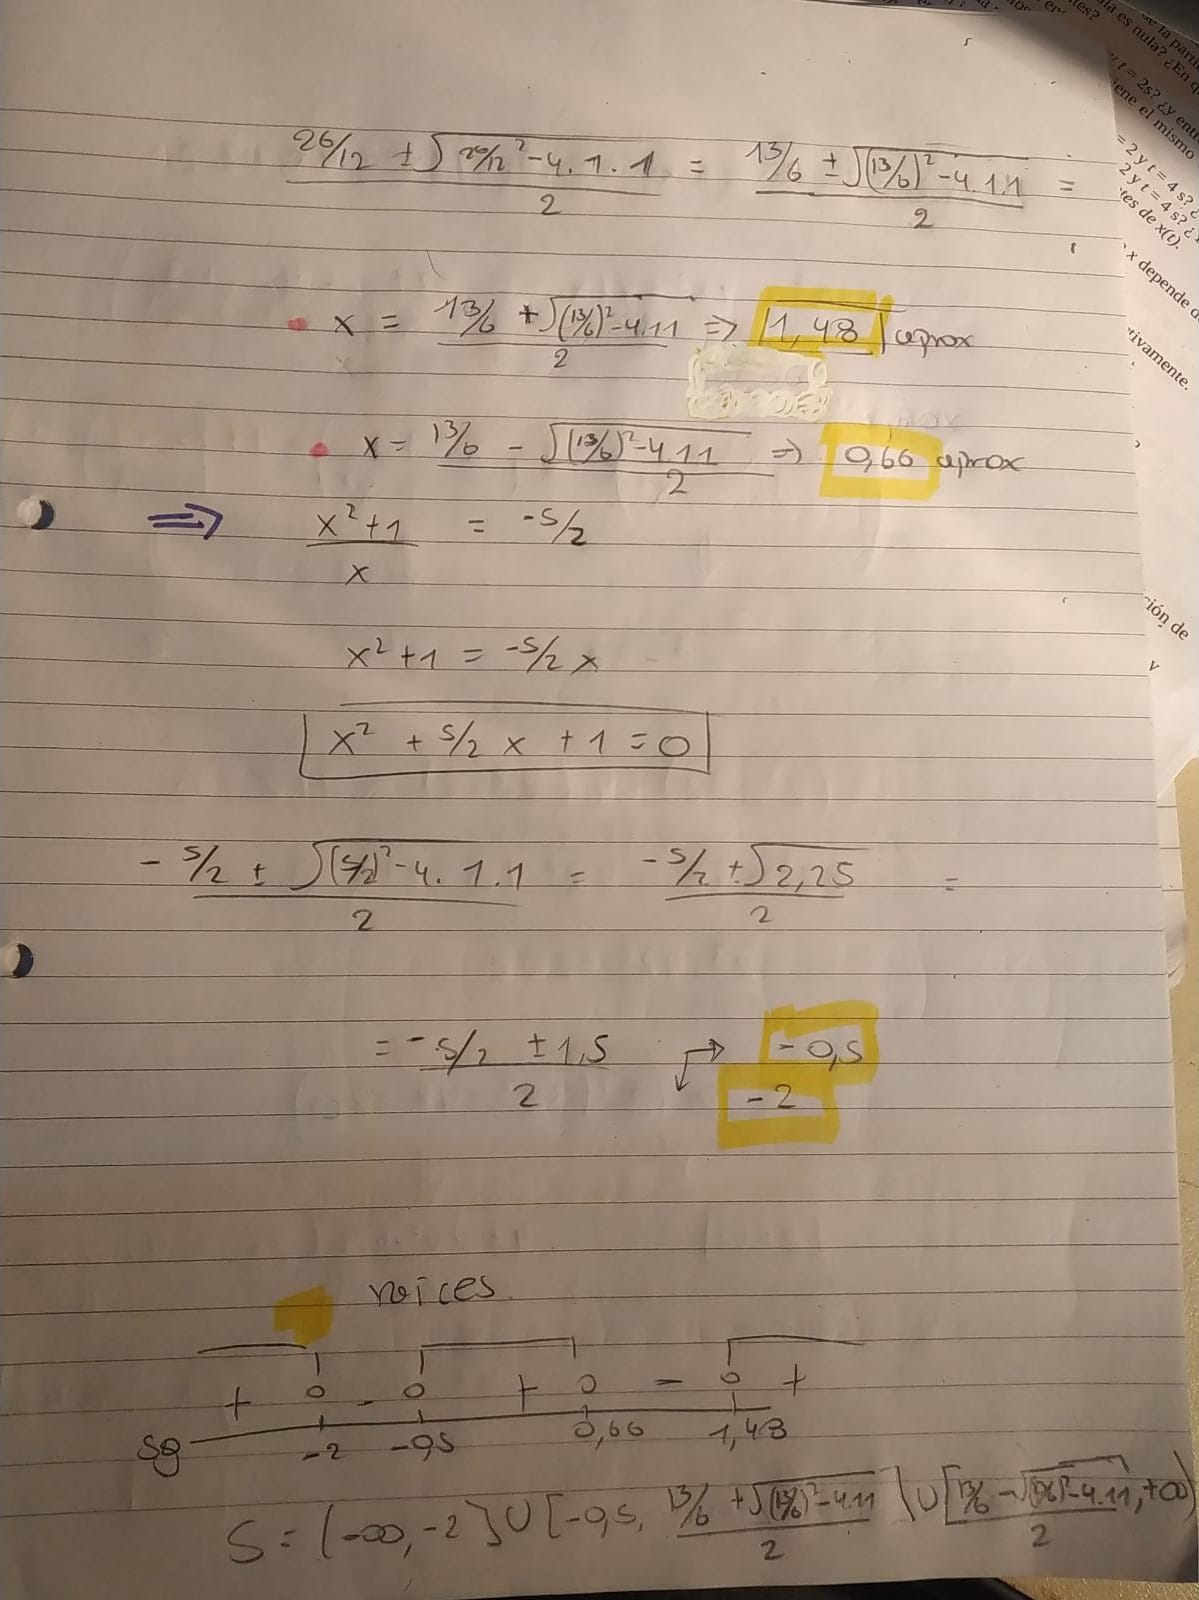 26/12 ± √(26/12² - 4.1.1) / 2 = 13/6 ± √((13/6)² - 4.1.1) / 2 =
x = 13/6 + √((13/6)² - 4.1.1) / 2 => 1,48 aprox
x = 13/6 - √((13/6)² - 4.1.1) / 2 => 0,66 aprox
=> x² + 1 / x = -5/2
x² + 1 = -5/2 x
x² + 5/2 x + 1 = 0
- 5/2 ± √((5/2)² - 4.1.1) / 2 = - 5/2 ± √2,25 / 2 =
= - 5/2 ± 1,5 / 2 → - 0,5
- 2
raices
+ 0 - 0 + 0 - 0 +
sg -2 -0,5 0,66 1,48
S = (-∞, -2] ∪ [-0,5, 13/6 + √((13/6)² - 4.1.1) / 2 ] ∪ [ 13/6 - √((13/6)² - 4.1.1) / 2, +∞)
la es nula? ¿En q
t = 2s? ¿y entr
iene el mismo
= 2 y t = 4 s? ¿
2 y t = 4 s? ¿
tes de x(t).
x depende d
tivamente.
ción de